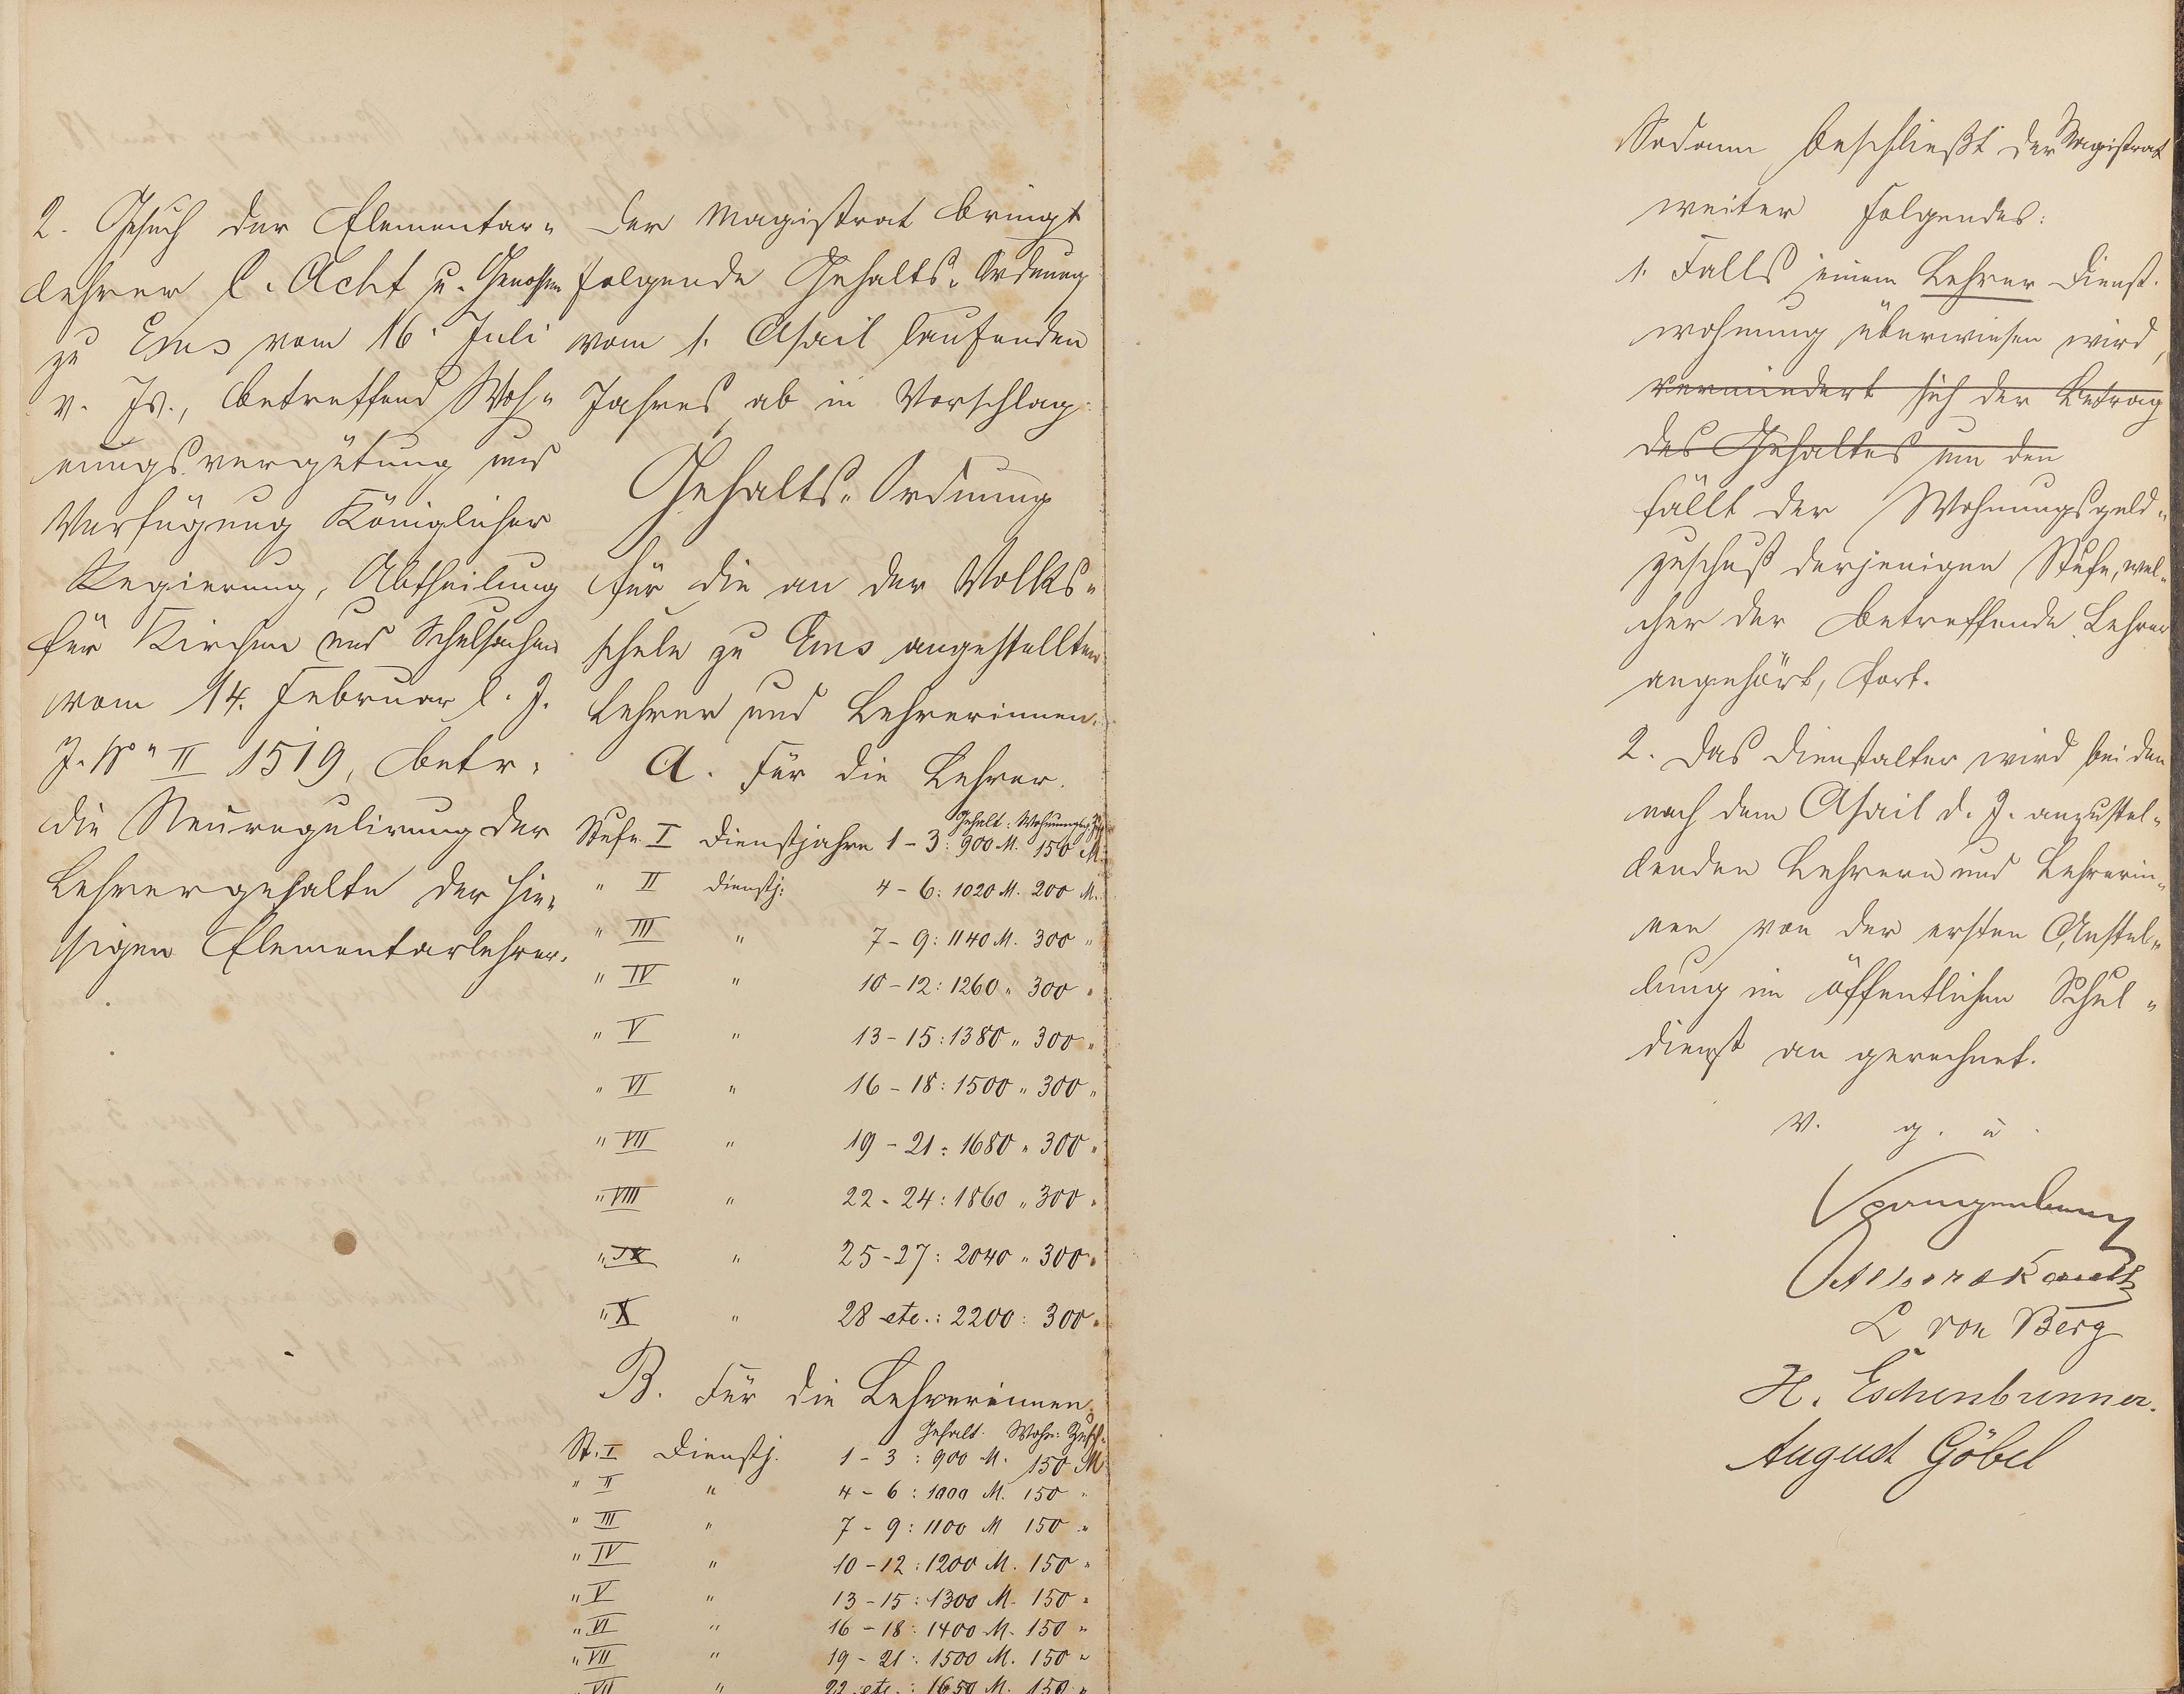 2. Gesuch der Elementar-
lehrer C. Acht u. Genossen
zu Ems vom 16. Juli
v. Js., betreffend Woh-
nungsvergütung und
Verfügung Königlicher
Regierung, Abtheilung
für Kirchen und Schulsachen
vom 14. Februar l. J.
J. No II 1519, betr.
die Neuregulirung der
Lehrergehalte der hie-
sigen Elementarlehrer.
Der Magistrat bringt
folgende Gehalts-Ordnung
vom 1. April laufenden
Jahres ab in Vorschlag:
Gehalts-Ordnung
für die an der Volks-
schule zu Ems angestellten
Lehrer und Lehrerinnen.
A. Für die Lehrer.
Gehalt: Wohnungsg.
Stufe I Dienstjahre 1-3: 900 M. 150 M.
" II Dienstj: 4-6: 1020 M. 200 M.
" III " 7-9: 1140 M. 300 "
" IV " 10-12: 1260 " 300 "
" V " 13-15: 1380 " 300 "
" VI " 16-18: 1500 " 300 "
" VII " 19-21: 1680 " 300 "
" VIII " 22-24: 1860 " 300 "
" IX " 25-27: 2040 " 300 "
" X " 28 etc.: 2200: 300 "
B. Für die Lehrerinnen.
Gehalt. Wohn: Zusch.
St. I Dienstj. 1-3: 900 M. 150 M
" II " 4-6: 1000 M. 150 "
" III " 7-9: 1100 M 150 "
" IV " 10-12: 1200 M. 150 "
" V " 13-15: 1300 M. 150 "
" VI " 16-18: 1400 M. 150 "
" VII " 19-21: 1500 M. 150 "
" VII " 22 etc.: 1650 M. 150 "
Sodann beschließt der Magistrat
weiter Folgendes:
1. Falls einem Lehrer Dienst-
wohnung überwiesen wird,
vermindert sich der Betrag
des Gehaltes um den
fällt der Wohnungsgeld-
zuschuß derjenigen Stufe, wel-
cher der betreffende Lehrer
angehört, fort.
2. Das Dienstalter wird bei den
nach dem April d. J. anzustel-
lenden Lehrern und Lehrerin-
nen von der ersten Anstel-
lung im öffentlichen Schul-
dienst an gerechnet.
v. g. u.
Spangenberg
L von Berg
H. Eschenbrenner.
August Göbel